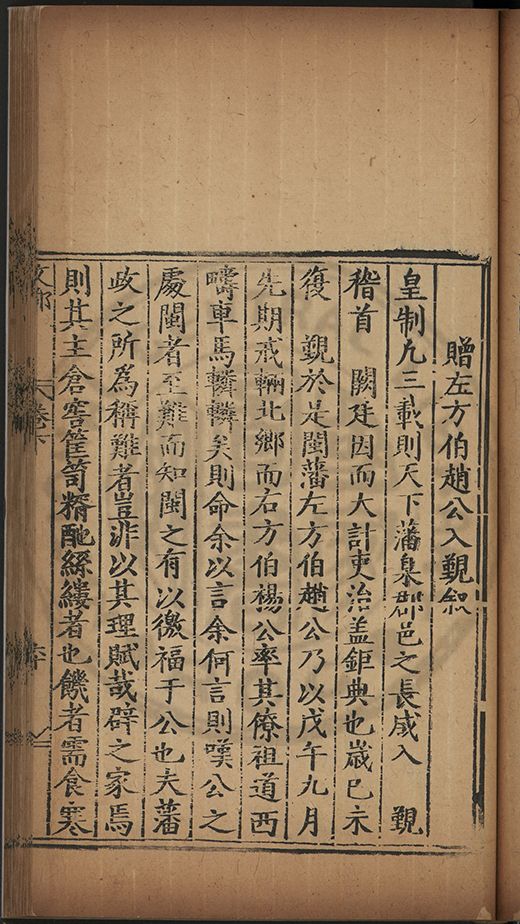 贈左方伯趙公入覲叙
皇制凢三載則天下藩臬郡邑之長咸入 覲
稽首 闕廷因而大計吏治盖鉅典也歲巳未
復 覲於是閩藩左方伯趙公乃以戊午九月
先期戒輛北鄉而右方伯楊公率其僚祖道西
疇車馬轔轔矣則命余以言余何言則嘆公之
處閩者至難而知閩之有以徼福于公也夫藩
政之所為稱難者豈非以其理賦哉辟之家焉
則其主倉窖筐笥糈酏絲縷者也饑者需食寒